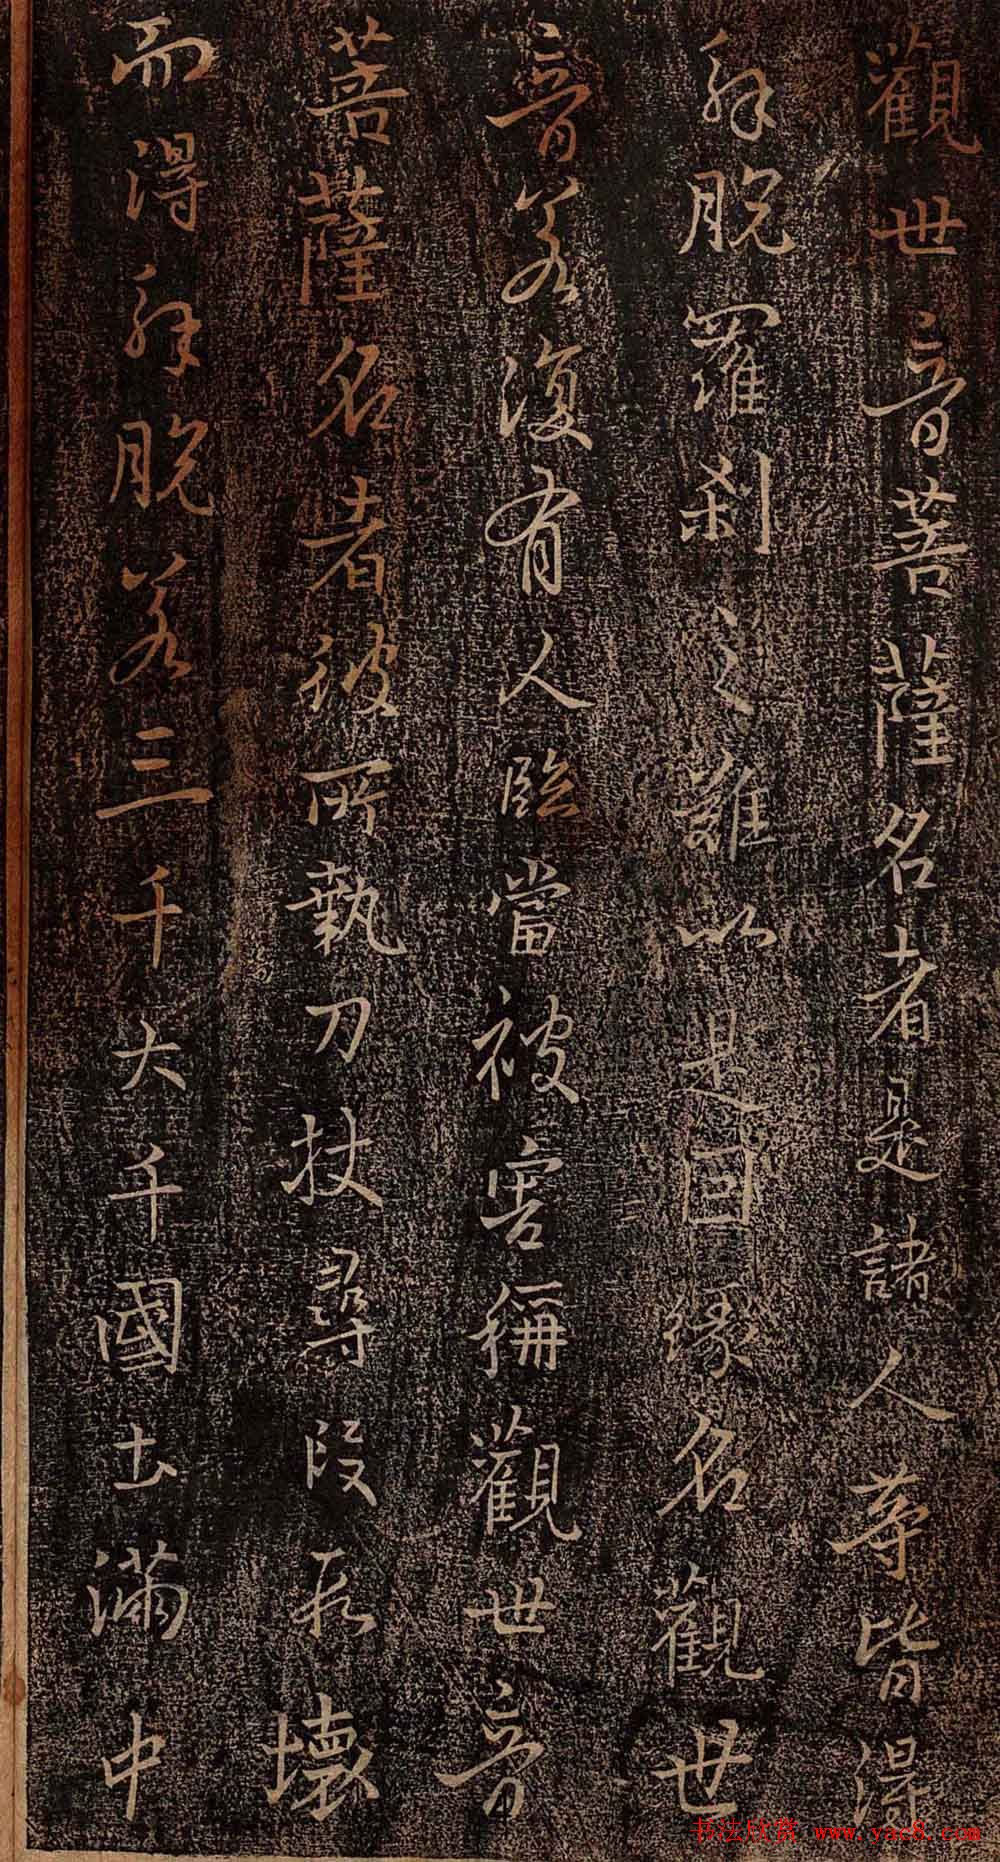 觀世音菩薩名者是諸人等皆得
解脫羅剎之難以是因緣名觀世
音若復有人臨當被害稱觀世音
菩薩名者彼所執刀杖尋段段壞
而得解脫若三千大千國土滿中
书法欣赏 www.yac8.com